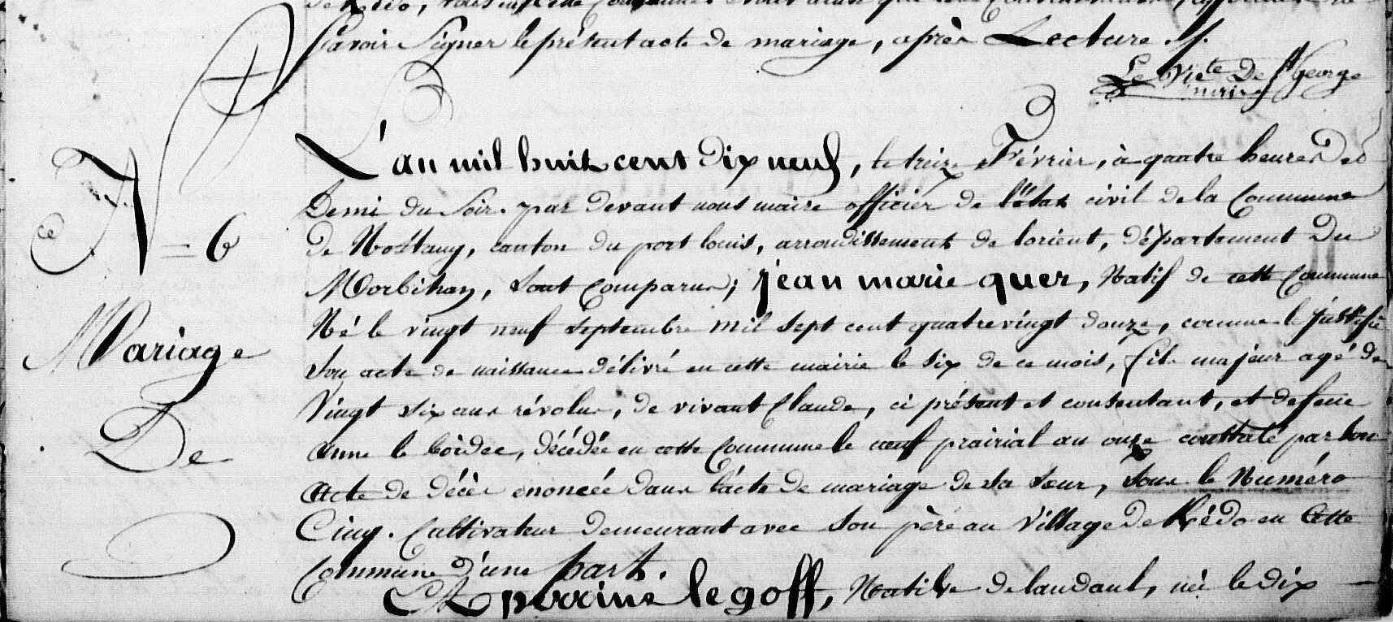 savoir signer le présent acte de mariage, après Lecture ./.
Le Vte De St George
maire
L'an mil huit cent dix neuf, le treize Février, à quatre heures Des
Demi du Soir. par devant nous maire officier de l'état civil de la Commune
de Nostang, canton du port louis, arrondissement de lorient, département Du
Morbihan, sont Comparus; jean marie quer, Natif de cette Commune
Né le vingt neuf septembre mil sept cent quatrevingt douze, comme le justifie
son acte de naissance délivré en cette mairie le six de ce mois, fils majeur agé de
Vingt six ans révolus, de vivant Claude, ci présent et consentant, et defeue
anne le boidec, décédée en cette Commune le neuf prairial an onze constaté par son
Acte de décès enoncée dans l'acte de mariage de sa soeur, sous le Numéro
Cinq. Cultivateur demeurant avec son père au Village de Kédo en Cette
Commune d'une part.
Et perrine le goff, Native de landaul, née le dix
N = 6
ce
Mariage
De